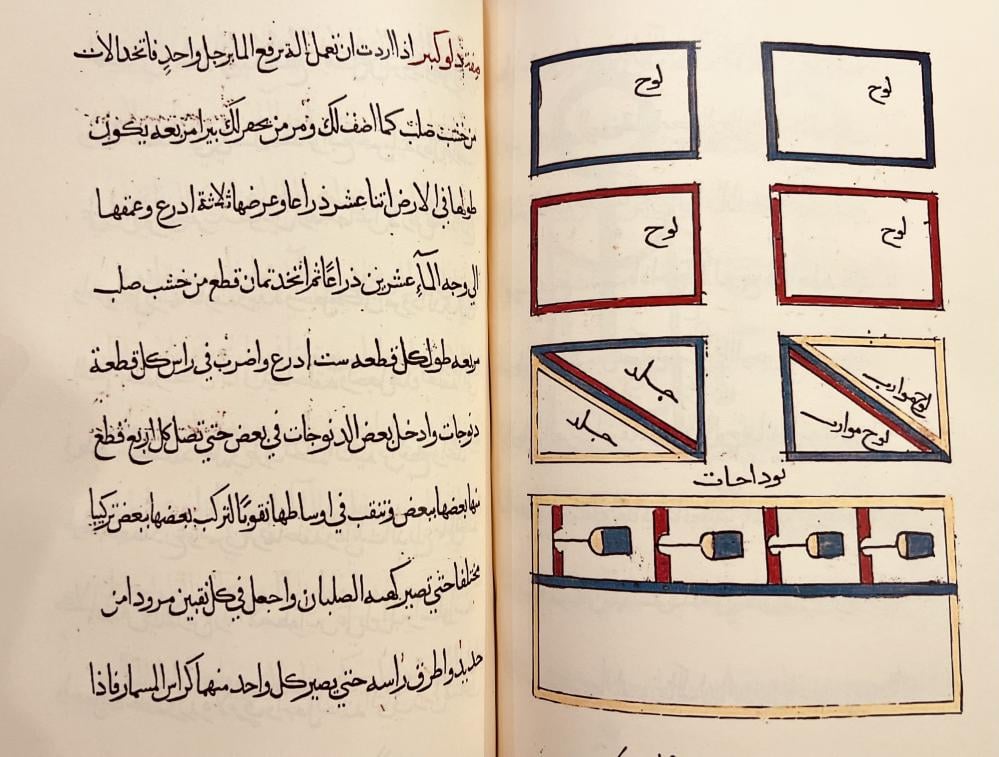 صفة دلو كبير اذا اردت ان تعمل الة ترفع الما برجل واحد فاتخد الات
من خشب صلب كما اصف لك ومر من يحفر لك بيرا مربعه يكون
طولها في الارض اتنا عشر ذراعا وعرضها ثلاثة ادرع وعمقها
الي وجه المآء عشرين ذراعًا ثم اتخد تمان قطع من خشب صلب
مربعه طول كل قطعه ست ادرع واضرب في راس كل قطعة
دنوجات وادخل بعض الدنوجات في بعض حتي تصل كل اربع قطع
منها بعضها ببعض وتنقب في اوساطها نقوبًا لتركب بعضها ببعض تركيبا
مختلفا حتي تصير كهيه الصلبان واجعل في كل نقبين مرودا من
حديد واطرق راسه حتي يصير كل واحد منهما كراس المسمار فاذا
لوح
لوح
لوح
لوح
جلد
جلد
لوح موارب
لوح موارب